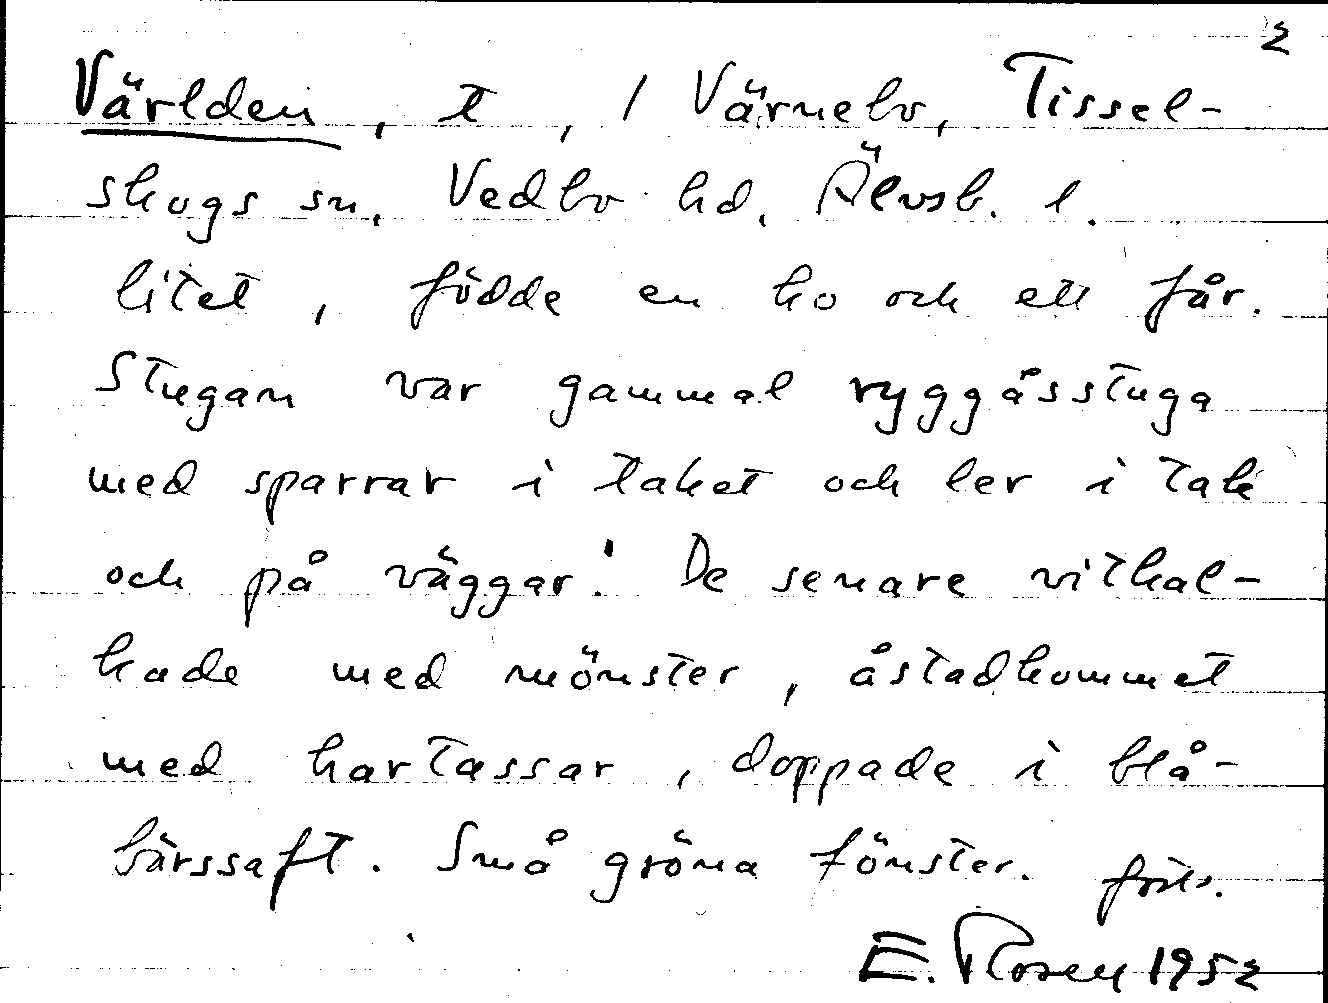 2
Världen, t, / Värnebo, Tissel-
skogs sn, Vedbo hd, Älvsb. l.
litet, födde en ko och ett får.
Stugan var gammal ryggåsstuga
med sparrar i taket och ler i tak
och på väggar! De senare vitkal-
kade med mönster, åstadkommet
med hartassar, doppade i blå-
bärssaft. Små gröna fönster. forts.
E. Rosen 1952